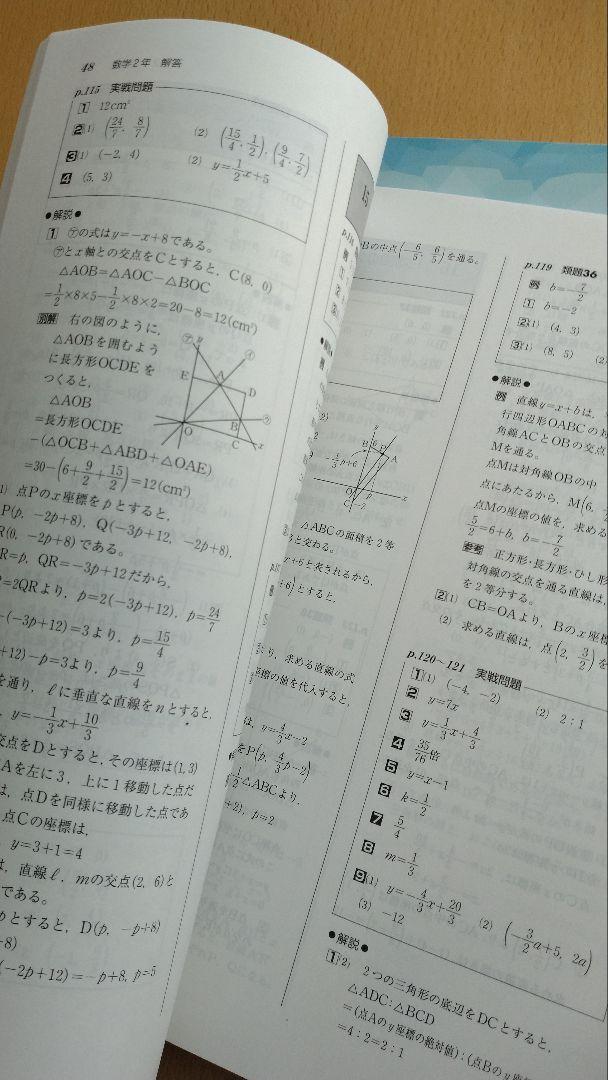 48 数学2年 解答
p.115 実戦問題
1 12cm²
2 (1) (24/7, 8/7) (2) (15/4, 1/2), (9/4, 7/2)
3 (1) (-2, 4) (2) y=1/2x+5
4 (5, 3)
●解説●
1 ㋐の式はy=-x+8である。
㋐とx軸との交点をCとすると, C(8, 0)
△AOB=△AOC-△BOC
=1/2×8×5-1/2×8×2=20-8=12(cm²)
別解 右の図のように,
△AOBを囲むよう
に長方形OCDEを
つくると,
△AOB
=長方形OCDE
-(△OCB+△ABD+△OAE)
=30-(6+9/2+15/2)=12(cm²)
㋐ y ㋑
E A D
㋒
B
O C x
1) 点Pのx座標をpとすると,
P(p, -2p+8), Q(-3p+12, -2p+8),
R(0, -2p+8)である。
R=p, QR=-3p+12だから,
p=2QRより, p=2(-3p+12), p=24/7
-(-3p+12)=3より, p=15/4
+12)-p=3より, p=9/4
を通り, ℓに垂直な直線をnとすると,
y=-1/3x+10/3
交点をDとすると, その座標は(1, 3)
Aを左に3, 上に1移動した点だ
は, 点Dを同様に移動した点であ
点Cの座標は,
y=3+1=4
は, 直線ℓ, mの交点(2, 6)と
である。
pとすると, D(p, -p+8)
+8)
(-2p+12)=-p+8, p=5
15
Bの中点(-6/5, 6/5)を通る。
y
B
A
-1/3p+6
O
C -2
x
△ABCの面積を2等
と交わる。
x+6と表されるから,
+6)とすると,
り, 求める直線の式
座標の値を代入すると,
は, y=4/3x-2
をP(p, 4/3p-2)
1/2△ABCより,
+2), p=2
p.119 類題36
例 b=-7/2
1 b=-2
2 (1) (4, 3)
3 (1) (8, 5) (2)
●解説●
例 直線y=x+bは,
行四辺形OABCの対
角線ACとOBの交点
Mを通る。
点Mは対角線OBの中
点にあたるから, M(6,
点Mの座標の値を, 求める
5/2=6+b, b=-7/2
参考 正方形・長方形・ひし形
対角線の交点を通る直線は,
を2等分する。
2 (1) CB=OAより, Bのx座標
(2) 求める直線は, 点(2, 3/2)を
p.120~121 実戦問題
1 (1) (-4, -2) (2) 2:1
2 y=7x
3 y=1/3x+4/3
4 35/76倍
5 y=x-1
6 k=1/2
7 5/4
8 m=1/3
9 (1) y=-4/3x+20/3 (2) (-3/2a+5, 2a)
(3) -12
●解説●
1 (2) 2つの三角形の底辺をDCとすると,
△ADC:△BCD
=(点Aのy座標の絶対値):(点Bのy座
=4:2=2:1